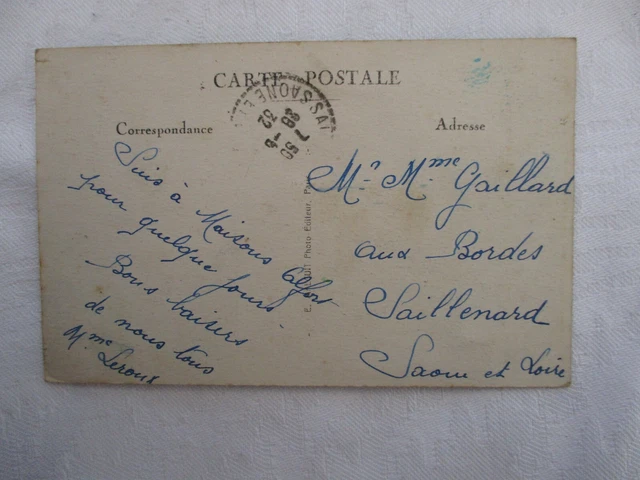 CARTE POSTALE
Correspondance
Adresse
SAONE ET
7 50
8
32
Suis à Maisons Alfort
pour quelque jours
Bons baisers
de nous tous
Mme Leroux
Photo Editeur, Paris
Mr Mme Gaillard
aux Bordes
Saillenard
Saone et Loire